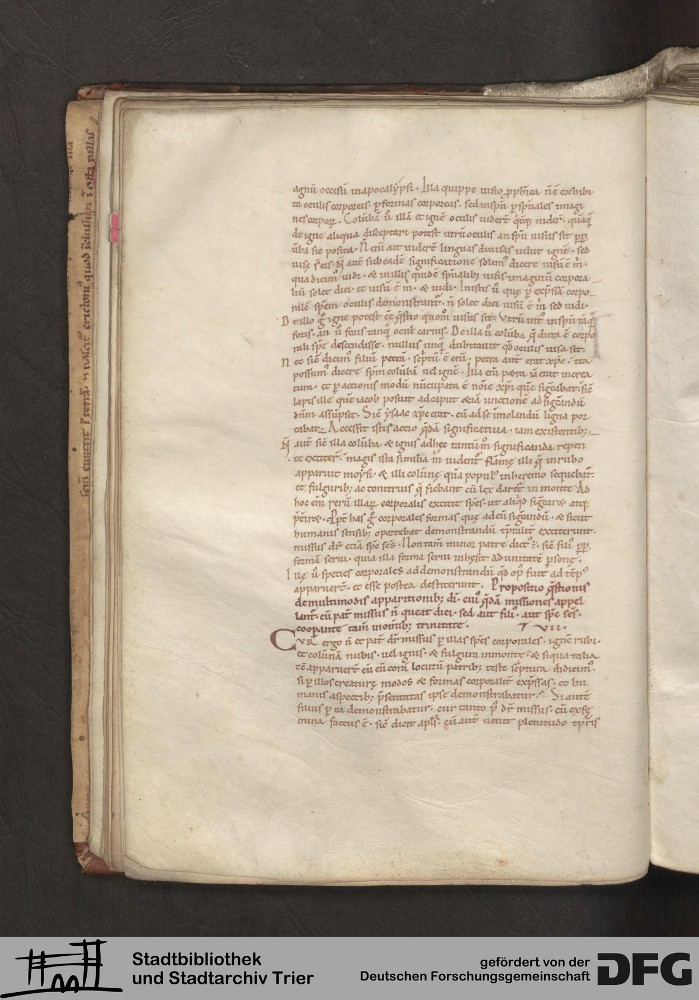 agnū occisū in apocalýpsi. Illa quippe uisio ꝓph&ica n̄ ē exhibi
ta oculis corporeis ꝑ formas corporeas. sed in spū ꝑ sp̄uales imagi
nes corporꝝ. Colūbā ū illā et ignē oculis uidert̄
de igne aliqua disceptari potest utrū oculis an spū uisus sit
ūba sic posita. N enī ait uidert̄ linguas diuisas uelut ignē. sed
uise s̄ eis. aut sub eadē significatione solem' dicere uisū ē m̄
qua dicim' uidi. & in illis quidē sp̄ualib; uisis imaginū corpora
liū solet dici. et uisū ē m̄. & uidi. In istis ū quę ꝑ exp̄ssā corpo
ralē spēm oculis demonstrant̄. n̄ solet dici uisū ē m̄ sed uidi.
De illo igne potest ēē q̄stio uisus sit. Vtrū int' in spū
foris. an ū foris tanq̄ ocul' carnis. De illa ū colūba. q̄ dicta ē corpo
rali spē descendisse. nullus unq̄ dubitauit qd̄ oculis uisa sit.
N ec sic dicim' filiū petrā. sc̄ptū ē enī. petra aut̄ erat xp̄c. ita
possum' dicere sp̄m colūbā uel ignē. Illa enī p&ra iā erat in crea
tura. et ꝑ actionis modū nūcupata ē nōīe xp̄i quē sig̅cabat. sic
lapis ille quē iacob posuit ad caput &iā unctionē ad sig̅candū
dn̄m assūpsit. Sic ysaac xp̄c erat. cū ad se īmolandū ligna por
tabat. Accessit istis actio q̄dā significatiua. iam existentib;
aut̄ sic illa colūba & ignis ad hęc tantūm' significanda repen
te extiter̄. magis ista similia m̄ uident̄ flāmę illi q̄ in rubo
apparuit moýsi. & illi colūnę quā popul' in heremo sequebat̄.
et fulgurib; ac tonitruis q̄ fiebant cū lex dar&̄ in monte. Ad
hoc enī rerū illaꝝ corporalis extitit spēs. ut aliqd sig̅car&. atq;
p̄tir&. Ꝓpt̄ has g̊ corporales formas quę ad eū sig̅candū. & sicut
humanis sensib; oportebat demonstrandū tp̄alit̄ extiterunt.
missus dr̄ etiā spc̄ sc̄s. Non tam minor patre dict' ē. sic fili' ꝓp
formā serui. quia illa forma serui inhęsit ad unitatē ꝑsonę.
Illę ū species corporales ad demonstrandū qd op' fuit ad tēp'
apparuer̄t. et esse postea destiterunt. Propositio q̄stionis
de multimodis apparitionib; dī. cui' q̄dā missiones appel
lant̄. cū pat̄ missus n̄ queat dici. sed aut fili. aut spc̄ sc̄s.
cooꝑante tam inoīnib; trinitate. VII.
CVR ergo n̄ et pat̄ dr̄ missus ꝑ illas spēs corporales. ignē rubi.
et colūnā nubis. uel ignis. & fulgura in monte. & siqua talia
tc̄ apparuert̄ cū eū corā locutū patrib; teste sc̄ptura didicim'
si ꝑ illos creaturę modos & formas corporalit̄ exp̄ssas. et hu
manis aspectib; p̄sentatas ipse demonstrabatur. Si autē
filius ꝑ ea demonstrabatur. cur tanto p' dr̄ missus. cū ex fę
mina factus ē. sic dicit apl̄s. Cū aut̄ uenit plenitudo tp̄ris
Stadtbibliothek
und Stadtarchiv Trier
gefördert von der
Deutschen Forschungsgemeinschaft
DFG